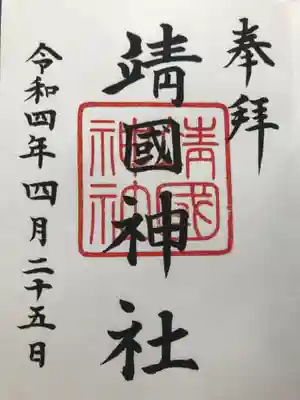 奉拝
靖國神社
靖國神社
令和四年四月二十五日